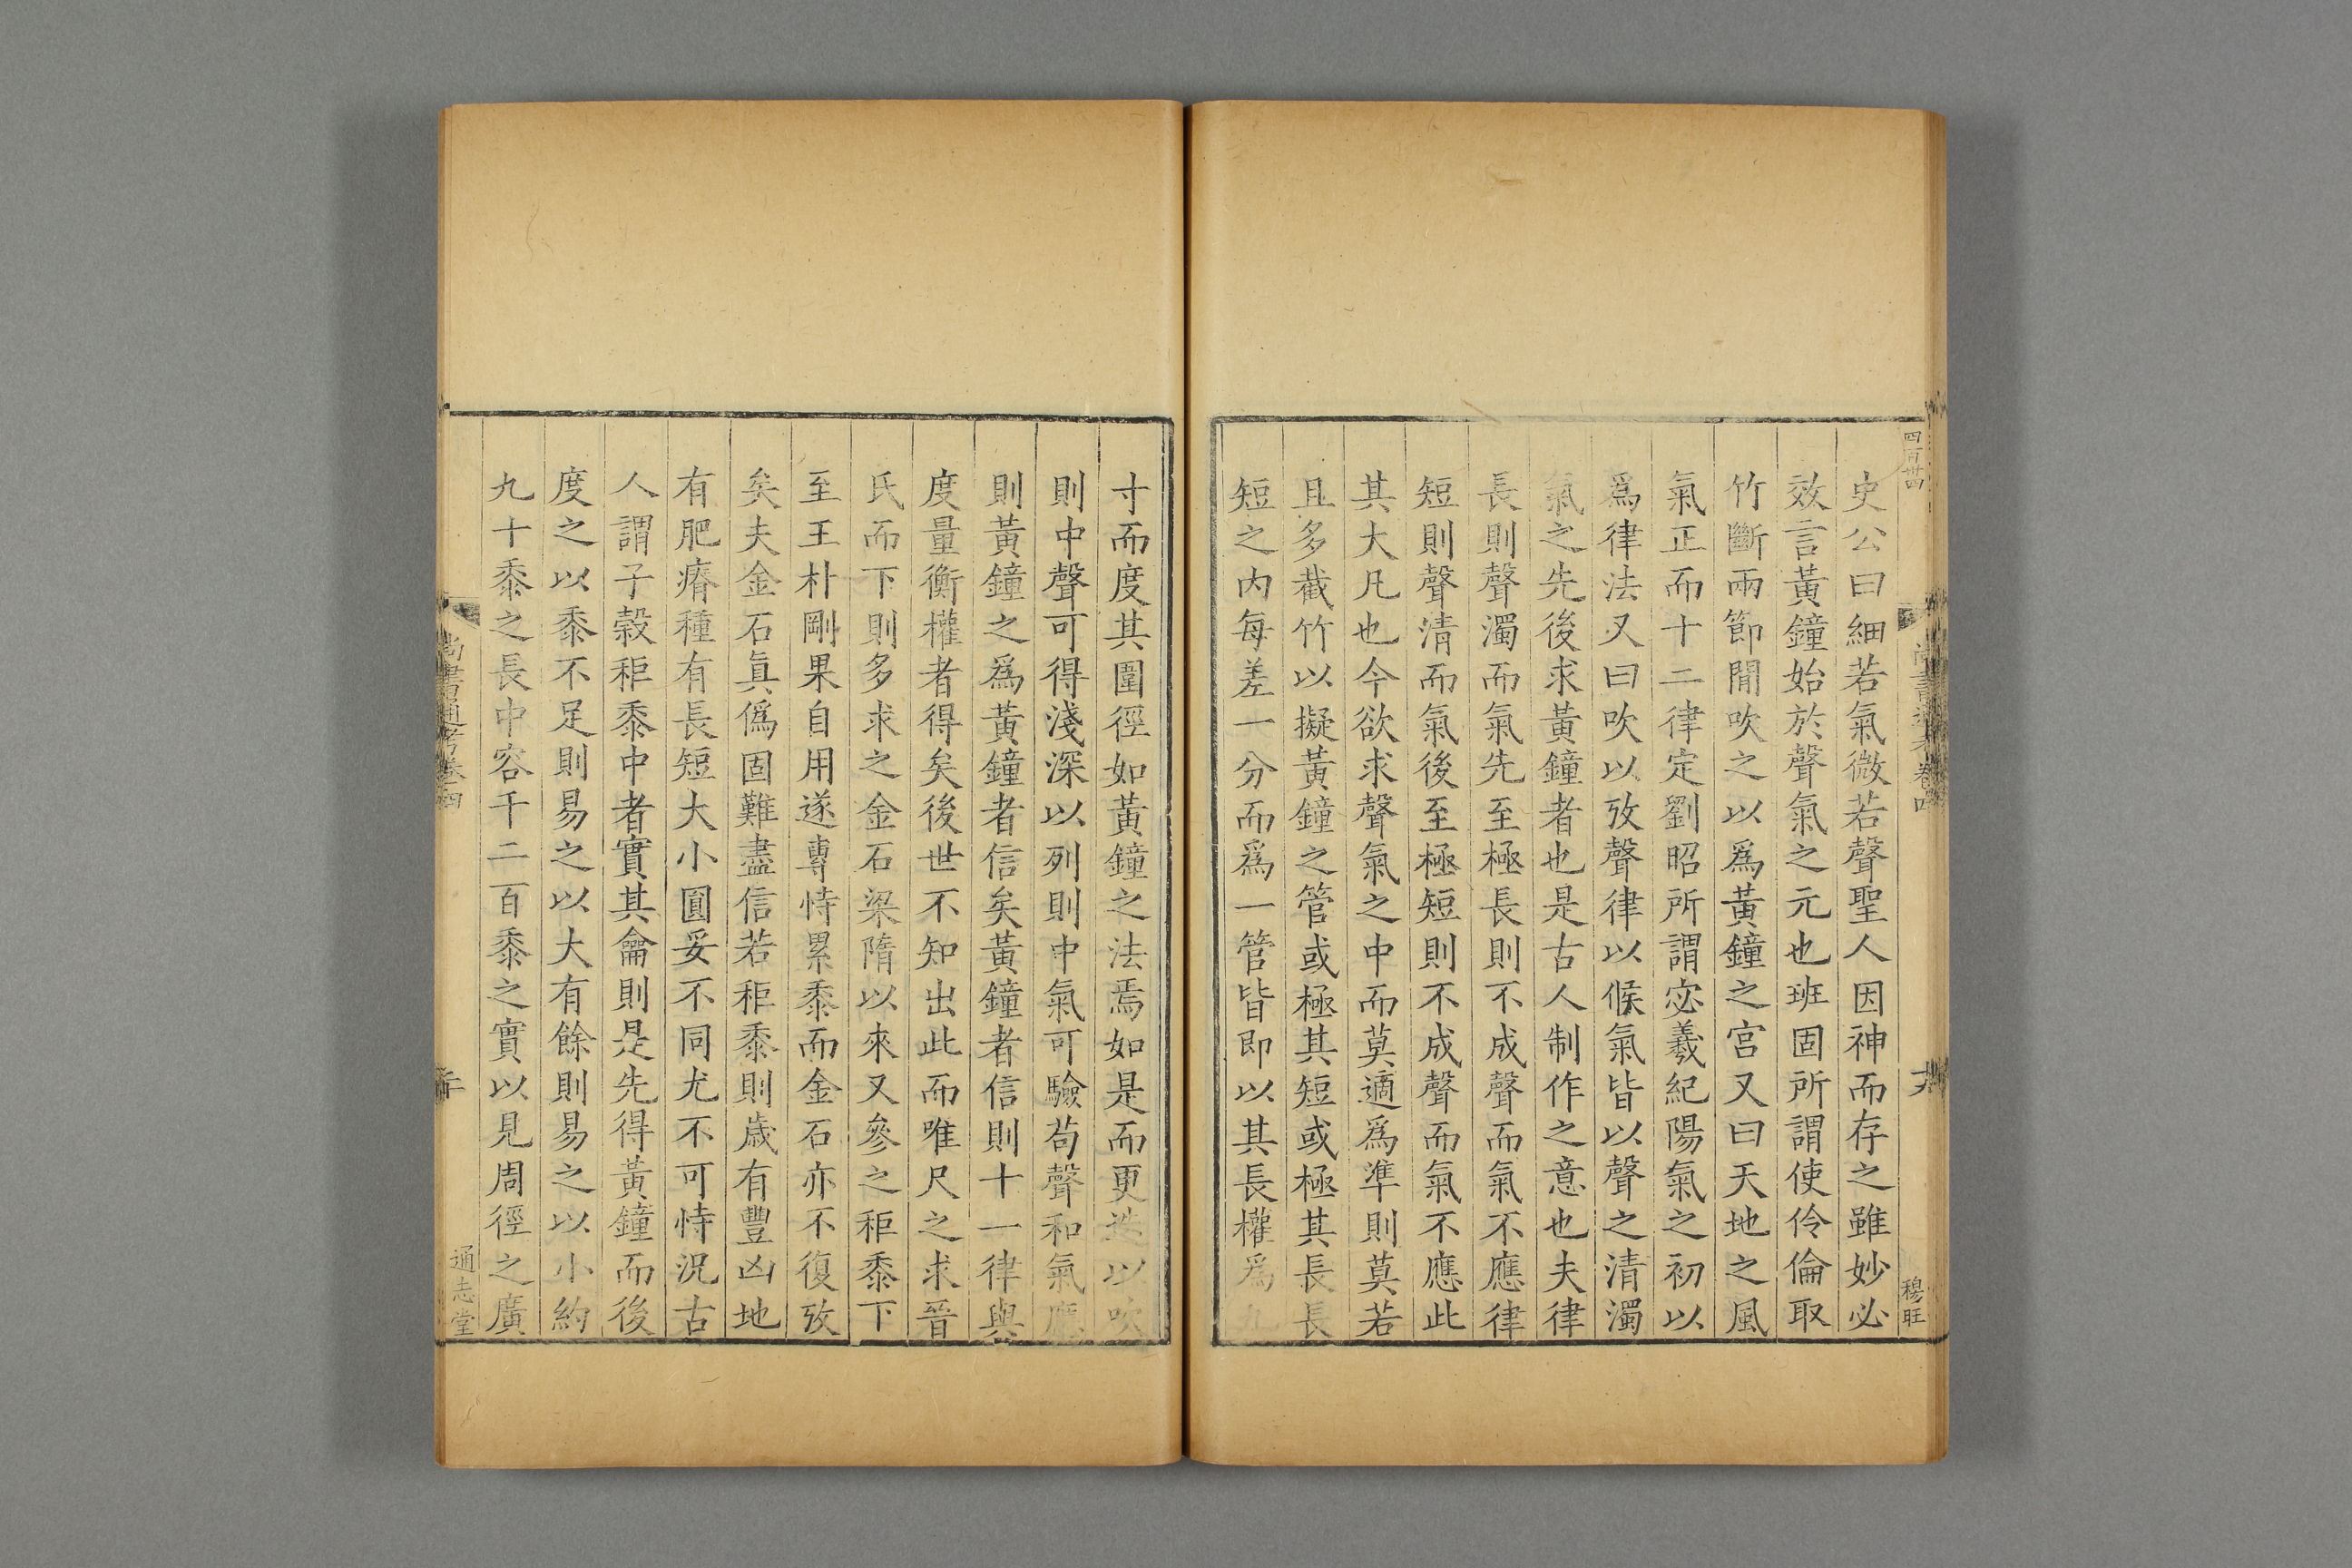 四百卅四
尚書通考卷四
穆旺
史公曰細若氣微若聲聖人因神而存之雖妙必
效言黃鐘始於聲氣之元也班固所謂使伶倫取
竹斷兩節閒吹之以爲黃鐘之宮又曰天地之風
氣正而十二律定劉昭所謂宓羲紀陽氣之初以
爲律法又曰吹以攷聲律以候氣皆以聲之清濁
氣之先後求黃鐘者也是古人制作之意也夫律
長則聲濁而氣先至極長則不成聲而氣不應律
短則聲清而氣後至極短則不成聲而氣不應此
其大凡也今欲求聲氣之中而莫適爲準則莫若
且多截竹以擬黃鐘之管或極其短或極其長長
短之內每差一分而爲一管皆即以其長權爲九
寸而度其圍徑如黃鐘之法焉如是而更迭以吹
則中聲可得淺深以列則中氣可驗苟聲和氣應
則黃鐘之爲黃鐘者信矣黃鐘者信則十一律與
度量衡權者得矣後世不知出此而唯尺之求晉
氏而下則多求之金石梁隋以來又參之秬黍下
至王朴剛果自用遂專恃累黍而金石亦不復攷
矣夫金石眞僞固難盡信若秬黍則歲有豐凶地
有肥瘠種有長短大小圓妥不同尤不可恃況古
人謂子穀秬黍中者實其龠則是先得黃鐘而後
度之以黍不足則易之以大有餘則易之以小約
九十黍之長中容千二百黍之實以見周徑之廣
尚書通考卷四
二十
通志堂